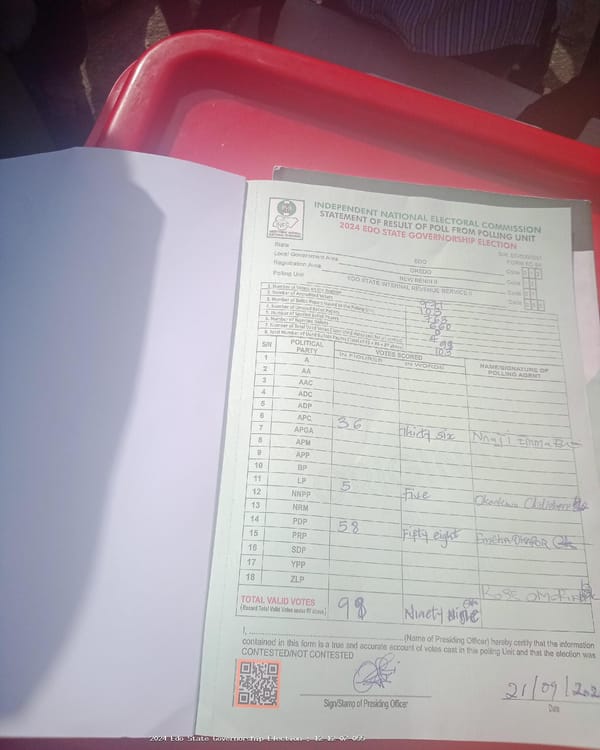 INDEPENDENT NATIONAL ELECTORAL COMMISSION
STATEMENT OF RESULT OF POLL FROM POLLING UNIT
2024 EDO STATE GOVERNORSHIP ELECTION
FORM EC 8A
State EDO Code
Local Government Area OREDO Code
Registration Area NEW BENIN II Code
Polling Unit EDO STATE INTERNAL REVENUE SERVICE II Code
1. Number of Voters on the Register
2. Number of Accredited Voters 103
3. Number of Ballot Papers Issued to the Polling Unit 763
4. Number of Unused Ballot Papers 660
5. Number of Spoiled Ballot Papers 0
6. Number of Rejected Ballots 4
7. Number of Total Valid Votes
8. Total Number of Used Ballot Papers 103
S/N POLITICAL PARTY VOTES SCORED NAME/SIGNATURE OF POLLING AGENT
IN FIGURES IN WORDS
1 A
2 AA
3 AAC
4 ADC
5 ADP
6 APC 36 Thirty six Nnaji Emma
7 APGA
8 APM
9 APP
10 BP
11 LP 5 Five
12 NNPP
13 NRM
14 PDP 58 Fifty eight Emeka OKAFOR
15 PRP
16 SDP
17 YPP
18 ZLP
TOTAL VALID VOTES Ninety
(Record Total Valid Votes
I, (Name of Presiding Officer) hereby certify that the information
contained in this form is a true and accurate account of votes cast in this polling Unit and that the election was
CONTESTED/NOT CONTESTED
Sign/Stamp of Presiding Officer
21/09/202
Date
2024 Edo State Governorship Election